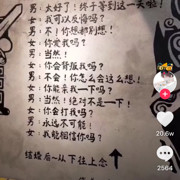 男：太好了！终于等到这一天啦！
女：我可以反悔吗？
男：不！你想都别想！
女：你爱我吗？
男：当然！
女：你会背叛我吗？
男：不会！你怎么会这么想！
女：你能亲我一下吗？
男：当然！绝对不是一下！
女：你会打我吗？
男：永远不可能！
女：我能相信你吗？
结婚后一从下往上念
20.6w